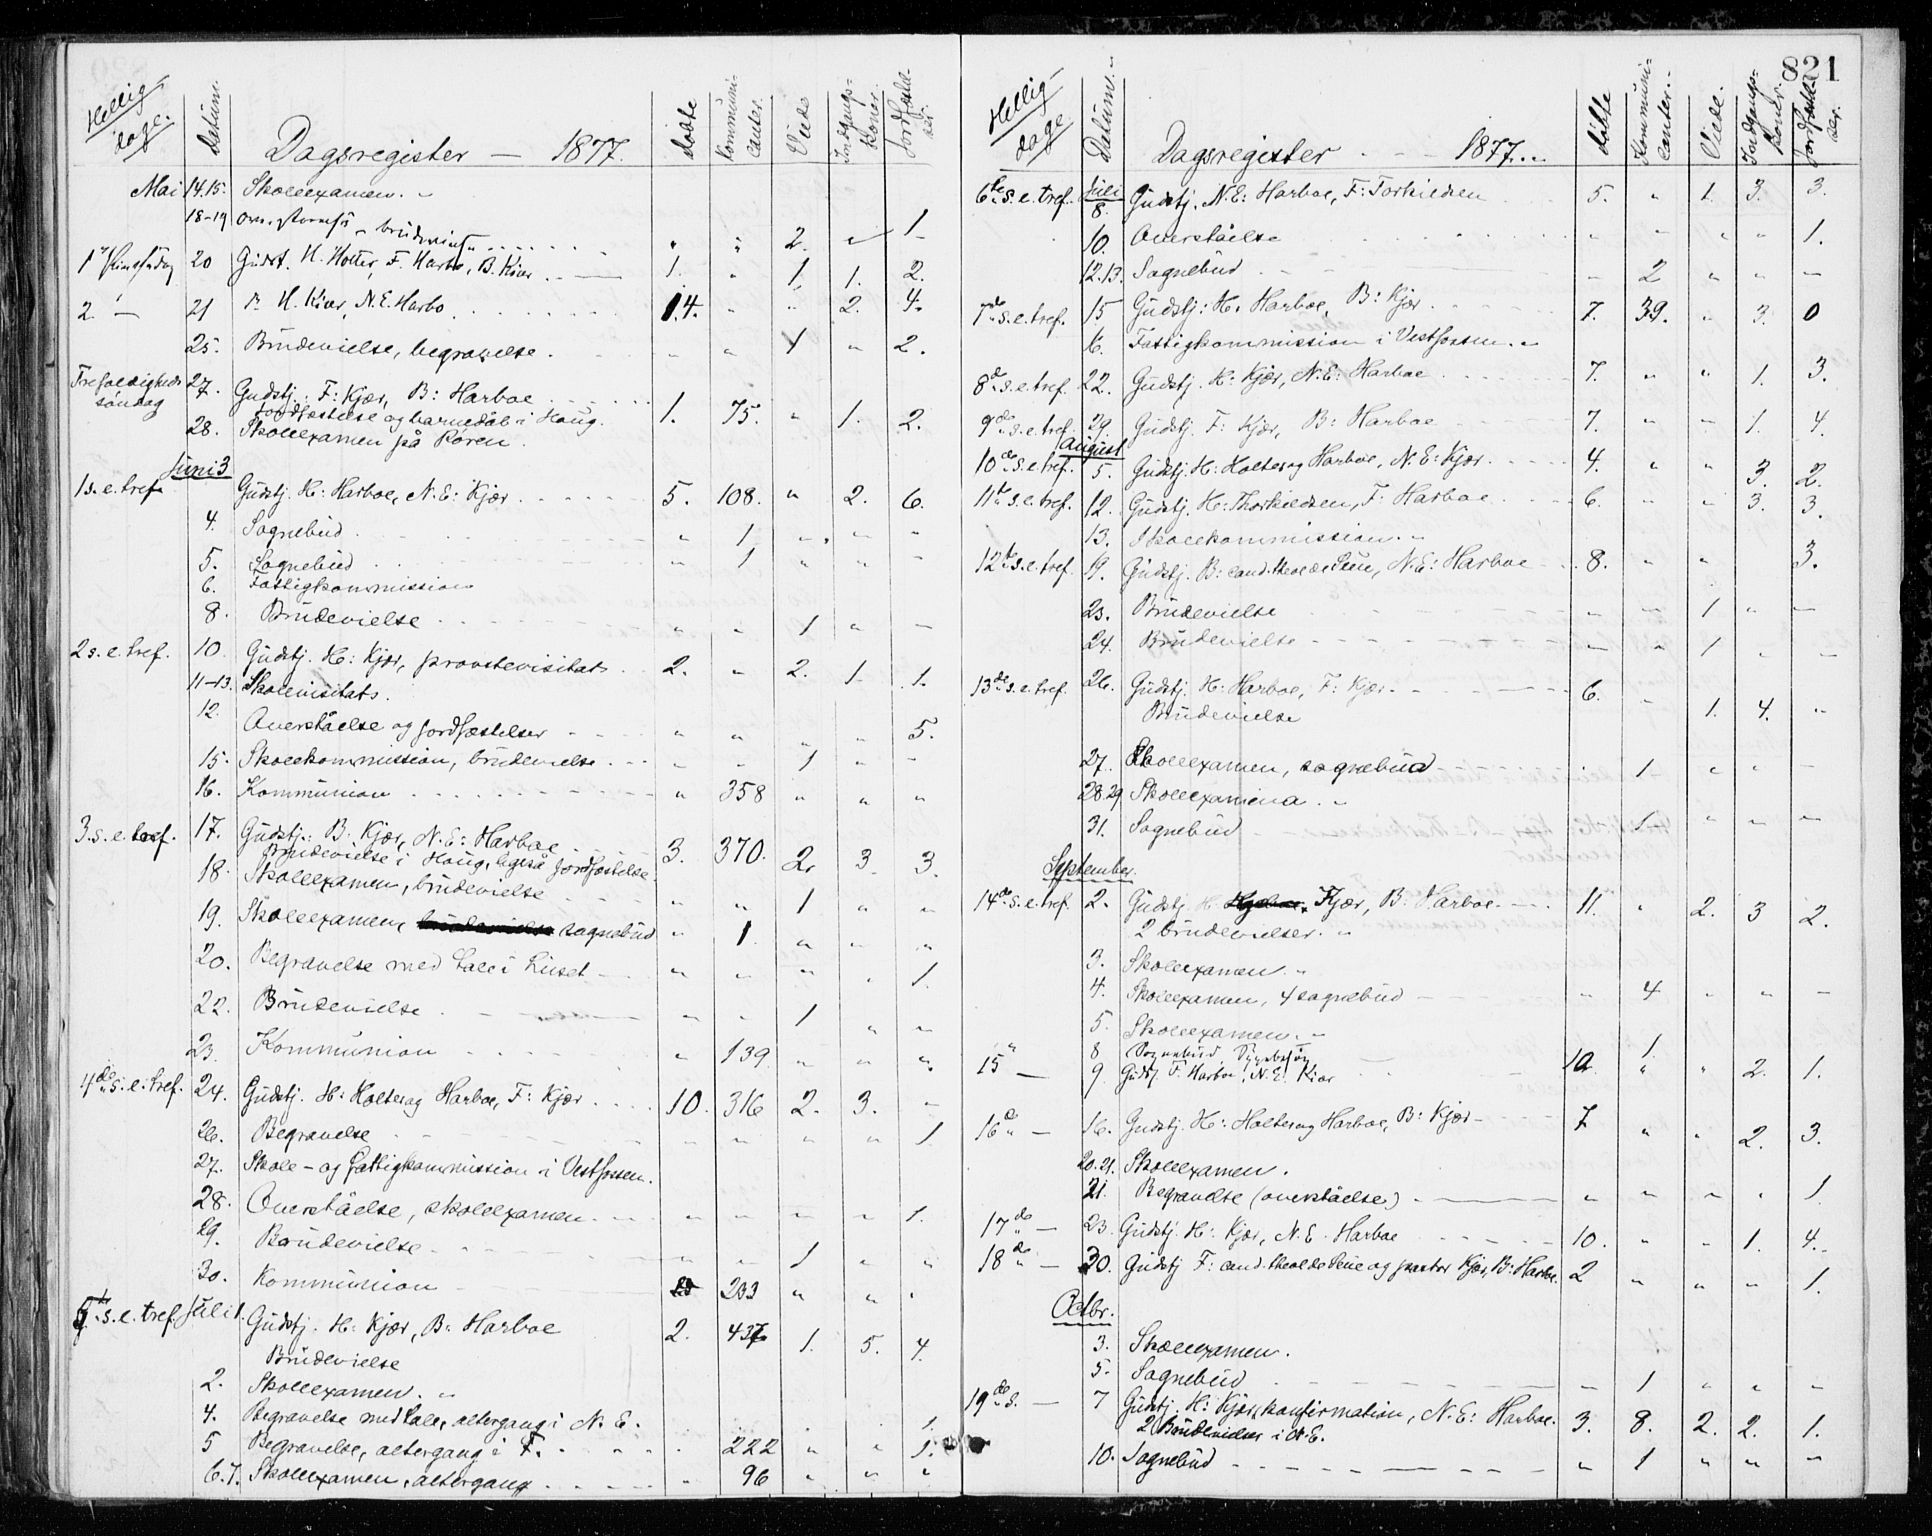 Hellig-
dage.
Datum.
Dagsregister — 1877.
døbte
Kommuni-
canter.
Viede
Indgangs-
koner.
Jordfæstel-
ser
Mai 14.15. Skoleexamen. "
18-19 brudevielse " " 2. " 1
1 Pinsedag 20 Gudst. H. Holter, F. Harbo, B. Kiær 1. " 1. 1. 2.
2 — 21 H. Kiær, N.E. Harbo 14. " " 2. 4.
25. Brudevielse, begravelse. " " 1 " 2.
Trefoldigheds 27. Gudstj.: F: Kjær, B: Harboe
søndag Jordfæstelse og barnedåb i Houg. 1. 75. " 1. 2.
28. Skoleexamen på Røren.
Juni 3
1 s. e. tref. Gudstj. H: Harboe, N.E: Kjær 5. 108. " 2. 6.
4. Sognebud " 1 " " "
5. Sognebud " 1 " " "
6. Fattigkommission
8. Brudevielse " " 1 " —
2 s. e. tref. 10. Gudstj. H: Kjær, provstevisitats 2. " 2. 1. 1.
11-13. Skolevisitats.
12. Overståelse og jordfæstelser " " " " 5.
15. Skolekommission, brudevielse " " 1 " "
16. Kommunion " 358 " " "
3. s. e. tref. 17. Gudstj.: B: Kjær, N.E: Harboe
Brudevielse i Houg, ligeså jordfæstelse. 3. 370. 2. 3. 3.
18. Skoleexamen, brudevielse " " 1 " "
19. Skoleexamen, sognebud " 1 " " "
20. Begravelse med tale i huset " " " " 1.
22. Brudevielse " " 1 " "
23. Kommunion " 139 " " "
4de s. e. tref. 24. Gudstj. H: Holter og Harboe, F: Kjær 10. 316 2. 3. —
26. Begravelse " " " " 1
27. Skole- og Fattigkommission i Vestfossen.
28. Overståelse, skoleexamen " " " " 1.
29. Brudevielse " " 1 " "
30. Kommunion 233 " " "
5te s. e. tref. Juli 1. Gudstj. H: Kjær, B: Harboe 2. 437 1. 5. 4.
Brudevielse
2. Skoleexamen. "
4. Begravelse med tale, altergang i N. E. 1.
5 Begravelse, altergang i F. 222 " " 1.
6.7. Skoleexamen, altergang " 96 " " "
821
Hellig-
dage
Datum.
Dagsregister — 1877.
døbte
Kommuni-
canter.
Viede.
Indgangs-
koner.
Jordfæstel-
ser.
6te s. e. tref. Juli 8. Gudstj. N.E: Harboe, F: Torkildsen 5. " 1. 3. 3.
10. Overståelse " " " " 1.
12.13. Sognebud — 2 " " —
7de s. e. tref. 15 Gudstj: H. Harboe, B: Kjær 7. 39. " 3. 0
16. Fattigkommission i Vestfossen. "
8de s. e. tref. 22. Gudstj. H: Kjær, N.E: Harboe 7. " " 1. 3.
9de s. e. tref. 29. Gudstj. F: Kjær, B: Harboe 7. " " 1. 4.
August
10de s. e. tref. 5. Gudstj. H: Holter og Harboe, N.E: Kjær 4. " " 3. 2.
11te s. e. tref. 12. Gudstj. H: Thorkildsen, F: Harboe 6. " " 3. 3.
13. Skolekommission. "
12te s. e. tref. 19. Gudstj. B: cand. theol de Seue, N.E: Harboe 8. " " " 3.
23. Brudevielse — — 1 " —
24. Brudevielse — " 1 " "
13de s. e. tref. 26. Gudstj. H: Harboe, F: Kjær 6. " 1. 4. "
Brudevielse
27. Skoleexamen, sognebud 1 " " —
28.29 Skoleexamina. "
31. Sognebud 1 " " —
September.
14de s. e. tref. 2. Gudstj. H: Kjær, B: Harboe 11. " 2. 3 2.
2 brudevielser. "
3. Skoleexamen. "
4. Skoleexamen, 4 sognebud " 4 " " —
5. Skoleexamen. "
8 Sognebud, Sygebesøg 1.
15 — 9. Gudstj. F. Harboe, N. E. Kiær 10. " " 2. 1.
16de — 16. Gudstj. H: Holter og Harboe, B: Kjær 7 " " 2. 3.
20.21. Skoleexamen.
21. Begravelse (overståelse) " " " " 1.
17de — 23. Gudstj. H: Kjær, N.E. Harboe 10. " " 1. 4.
18de — 30. Gudstj F: cand. theol de Seue og pastor Kjær, B: Harboe. 2 " " " 1.
Octbr.
3. Skoleexamen.
5. Sognebud — 1 " " "
19de S. — 7 Gudstj. H: Kjær, konfirmation, N.E: Harboe. 3. 8. 2. 2. 1.
2 Brudevielser i N.E.
10. Sognebud " 1 " " "